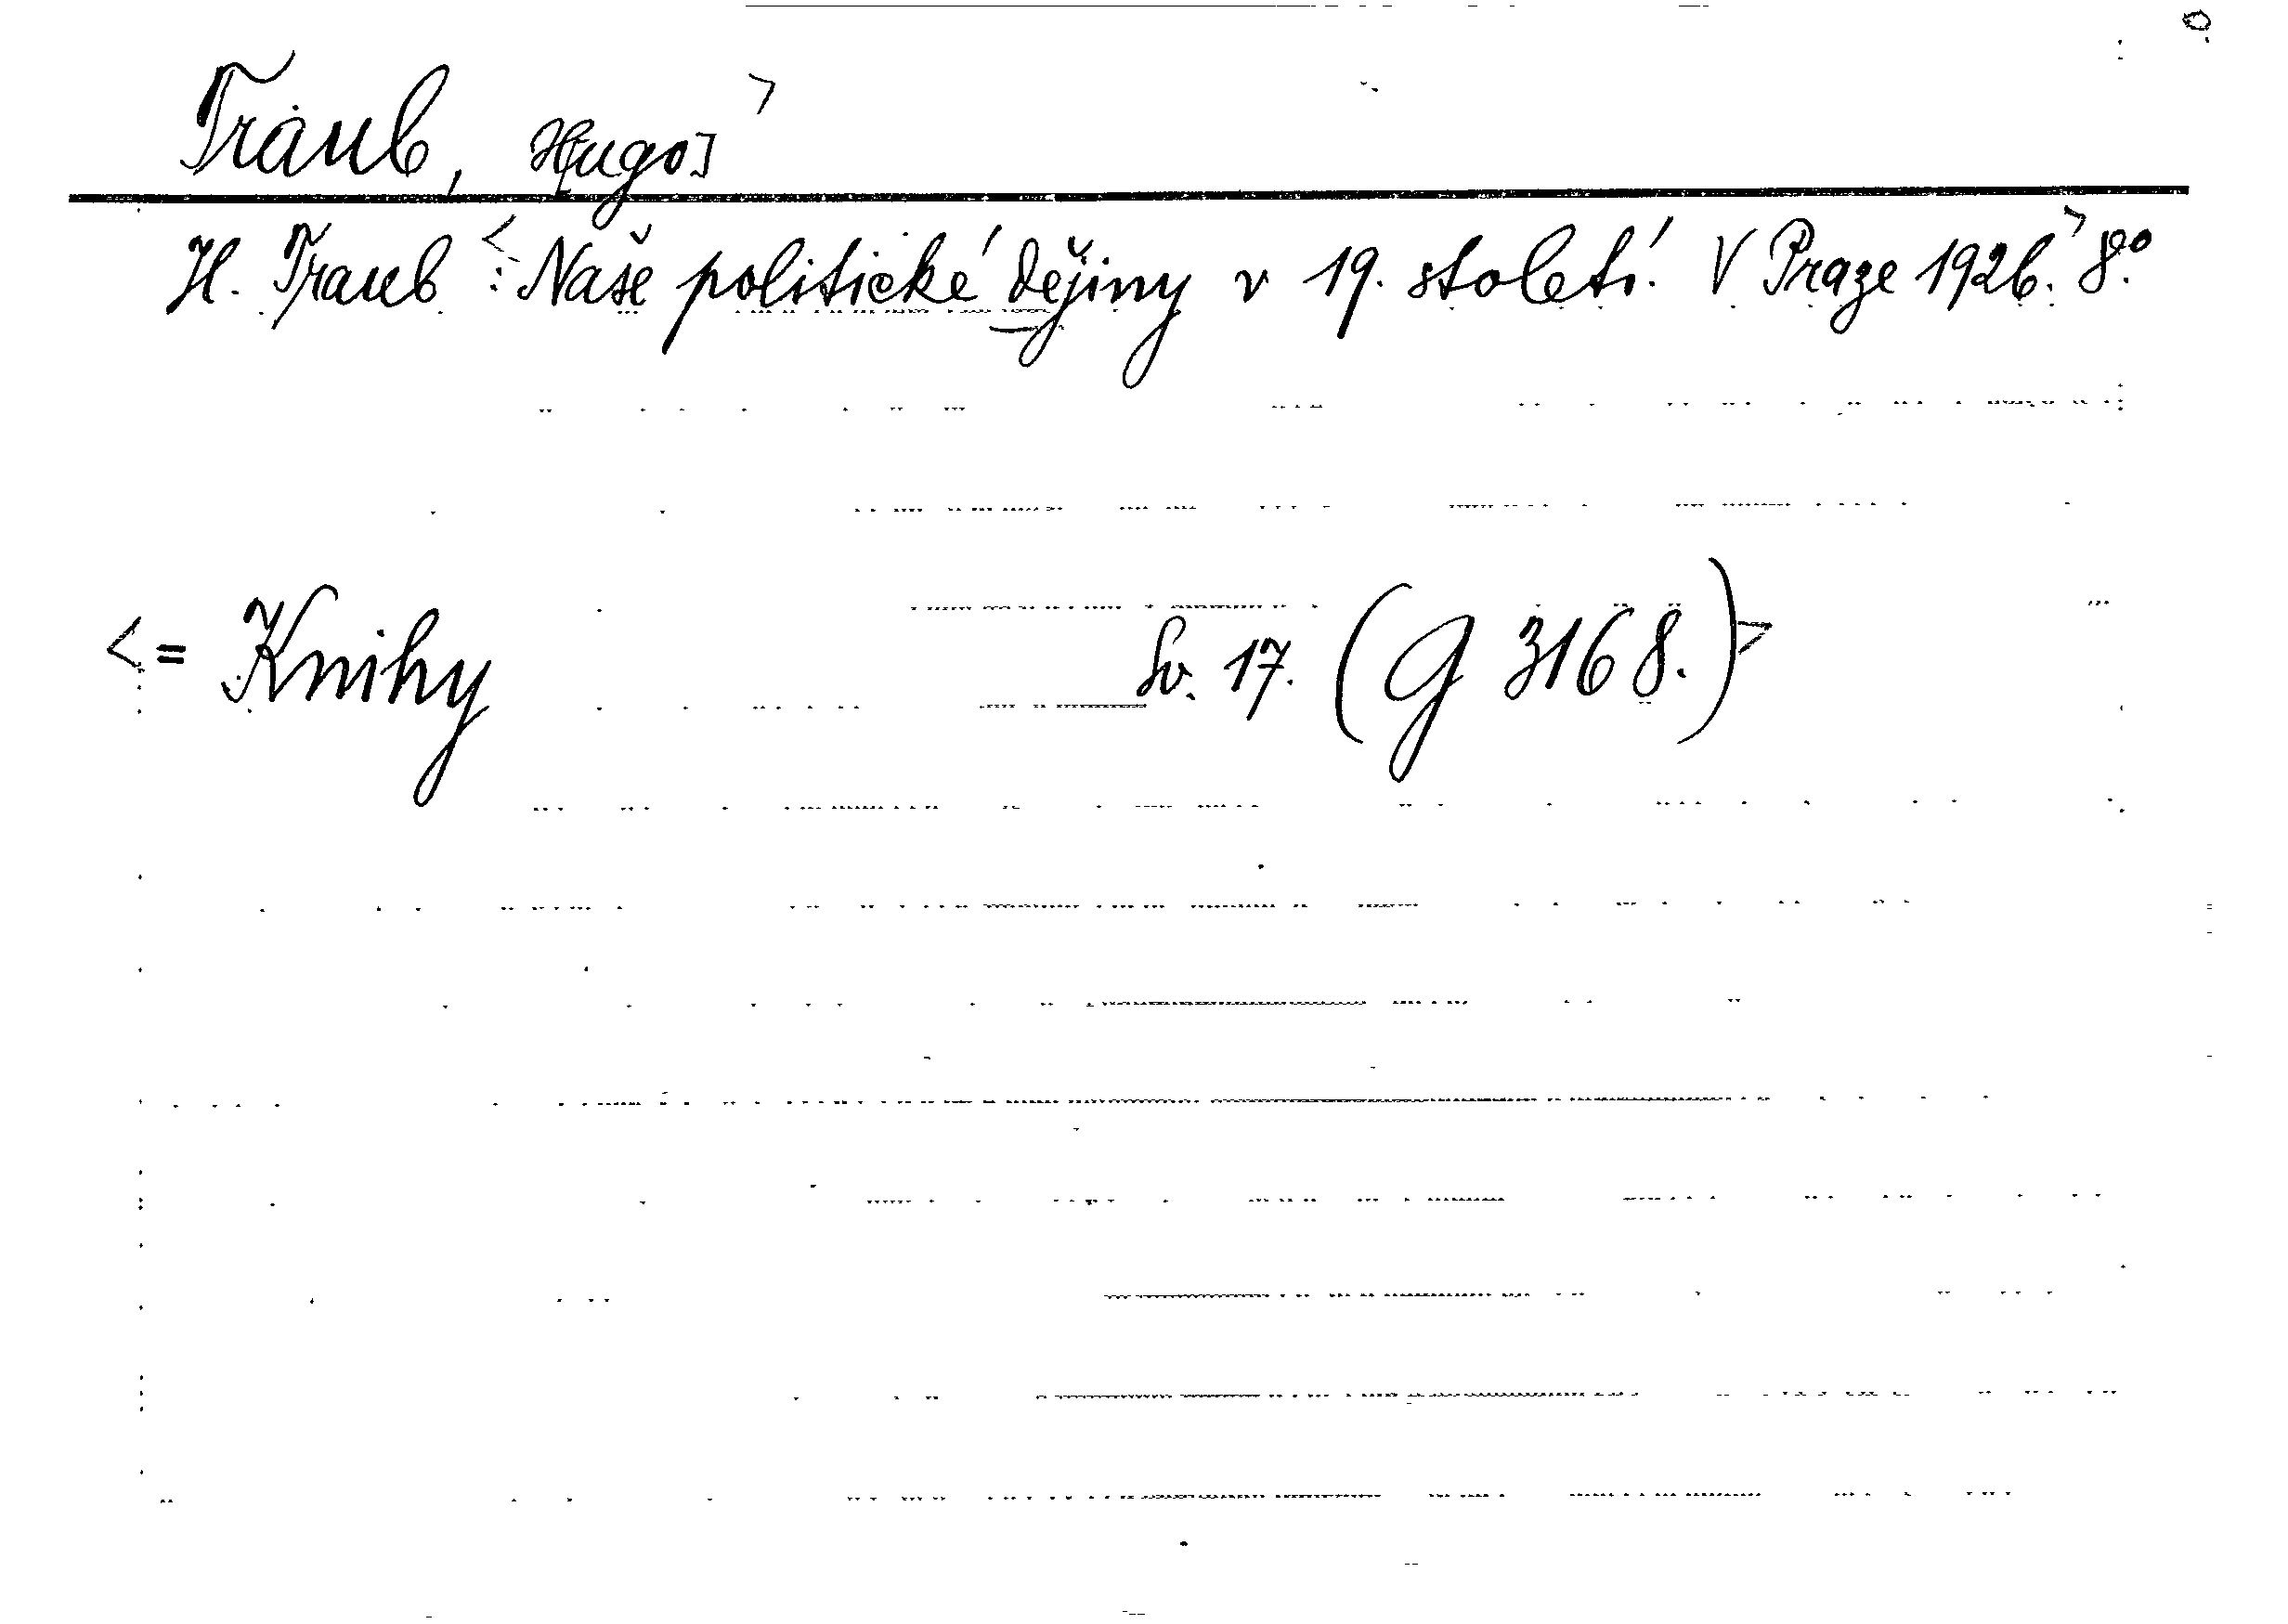 Traub, Hugo] >
H. Traub <: Naše politické dějiny v 19. století. V Praze 1926.> 8.°
<= Knihy Sv. 17. (G 3168.)>